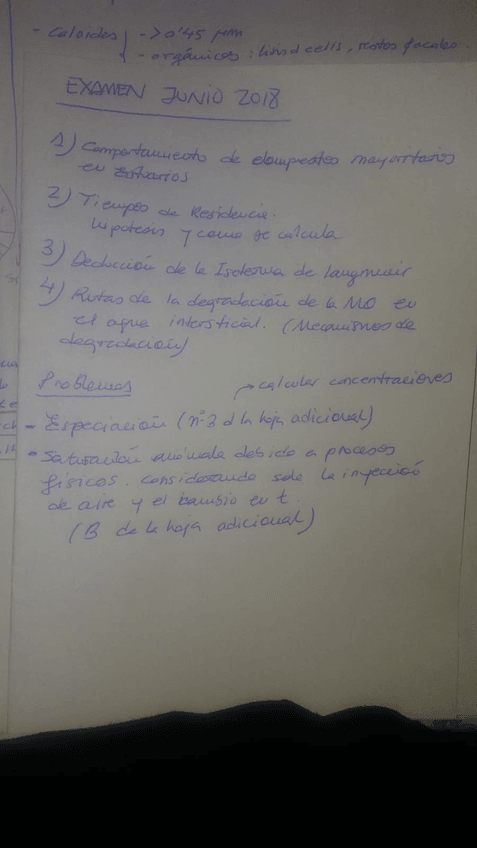 - Coloides - >0'45 µm
- orgánicos: , restos fecales.
EXAMEN JUNIO 2018
1) Comportamiento de elementos mayoritarios
en Estuarios
2) Tiempos de Residencia.
Hipótesis y como se calcula
3) Deducción de la Isoterma de Langmuir
4) Rutas de la degradación de la MO en
el agua intersticial. (Mecanismos de
degradación)
Problemas
→ calcular concentraciones
- Especiación (nº3 d la hoja adicional)
• Saturación anómala debido a procesos
físicos. Considerando solo la inyección
de aire y el cambio en t.
(B de la hoja adicional)